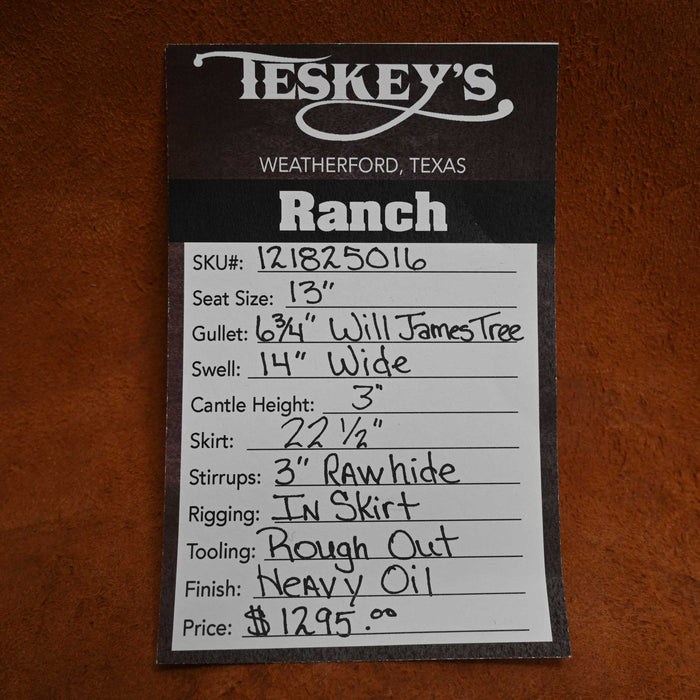 TESKEY'S
WEATHERFORD, TEXAS
Ranch
SKU#: 121825016
Seat Size: 13"
Gullet: 6 3/4" Will James Tree
Swell: 14" Wide
Cantle Height: 3"
Skirt: 22 1/2"
Stirrups: 3" RAwhide
Rigging: IN Skirt
Tooling: Rough Out
Finish: HeAvy Oil
Price: $1295.00